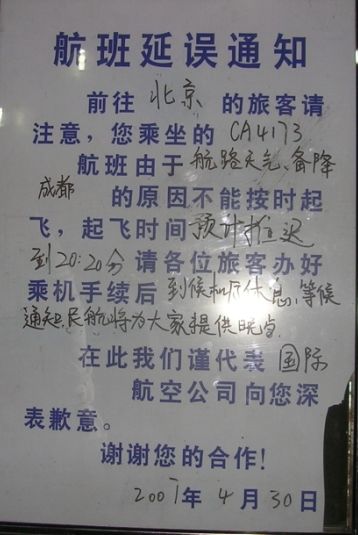 航班延误通知
前往 北京 的旅客请
注意，您乘坐的 CA4173
航班由于 航路天气、备降
成都 的原因不能按时起
飞，起飞时间 预计推迟
到20:20分 请各位旅客办好
乘机手续后 到候机厅休息,等候
通知.民航将为大家提供晚点.
在此我们谨代表 国际
航空公司向您深
表歉意。
谢谢您的合作！
2007年 4 月 30 日